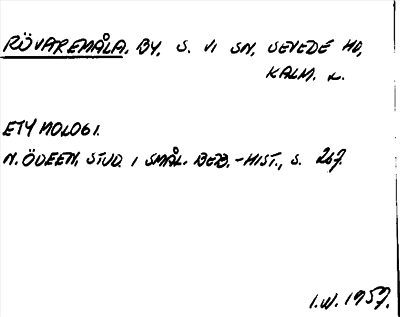 RÖVAREMÅLA, BY, S. VI SN, SEVEDE HD,
KALM. L.
ETYMOLOGI.
N. ÖDEEN, STUD. I SMÅL. BEB.-HIST., S. 267.
I.W. 1957.